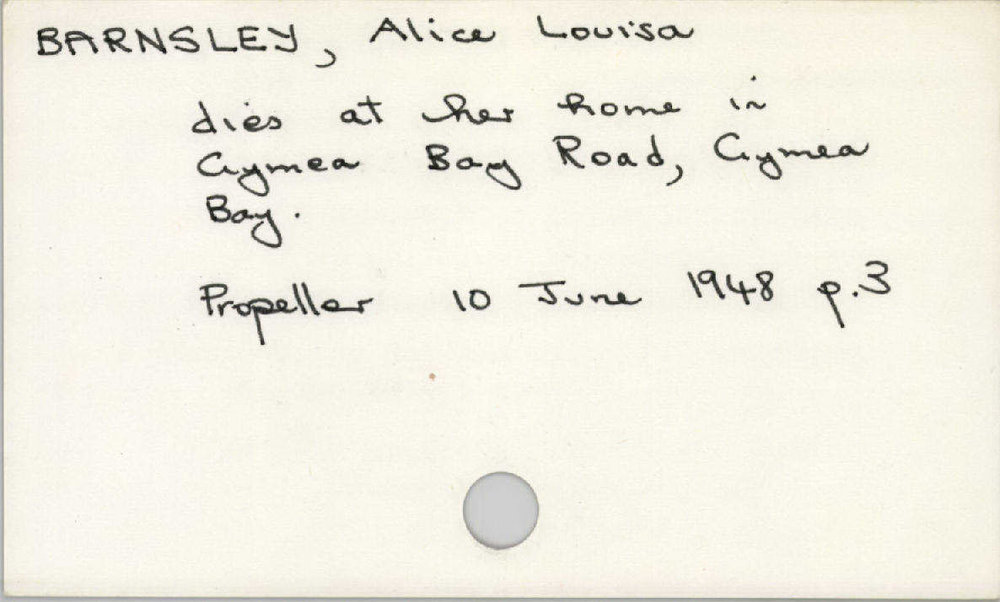 BARNSLEY, Alice Louisa
dies at her home in
Gymea Bay Road, Gymea
Bay.
Propeller 10 June 1948 p.3